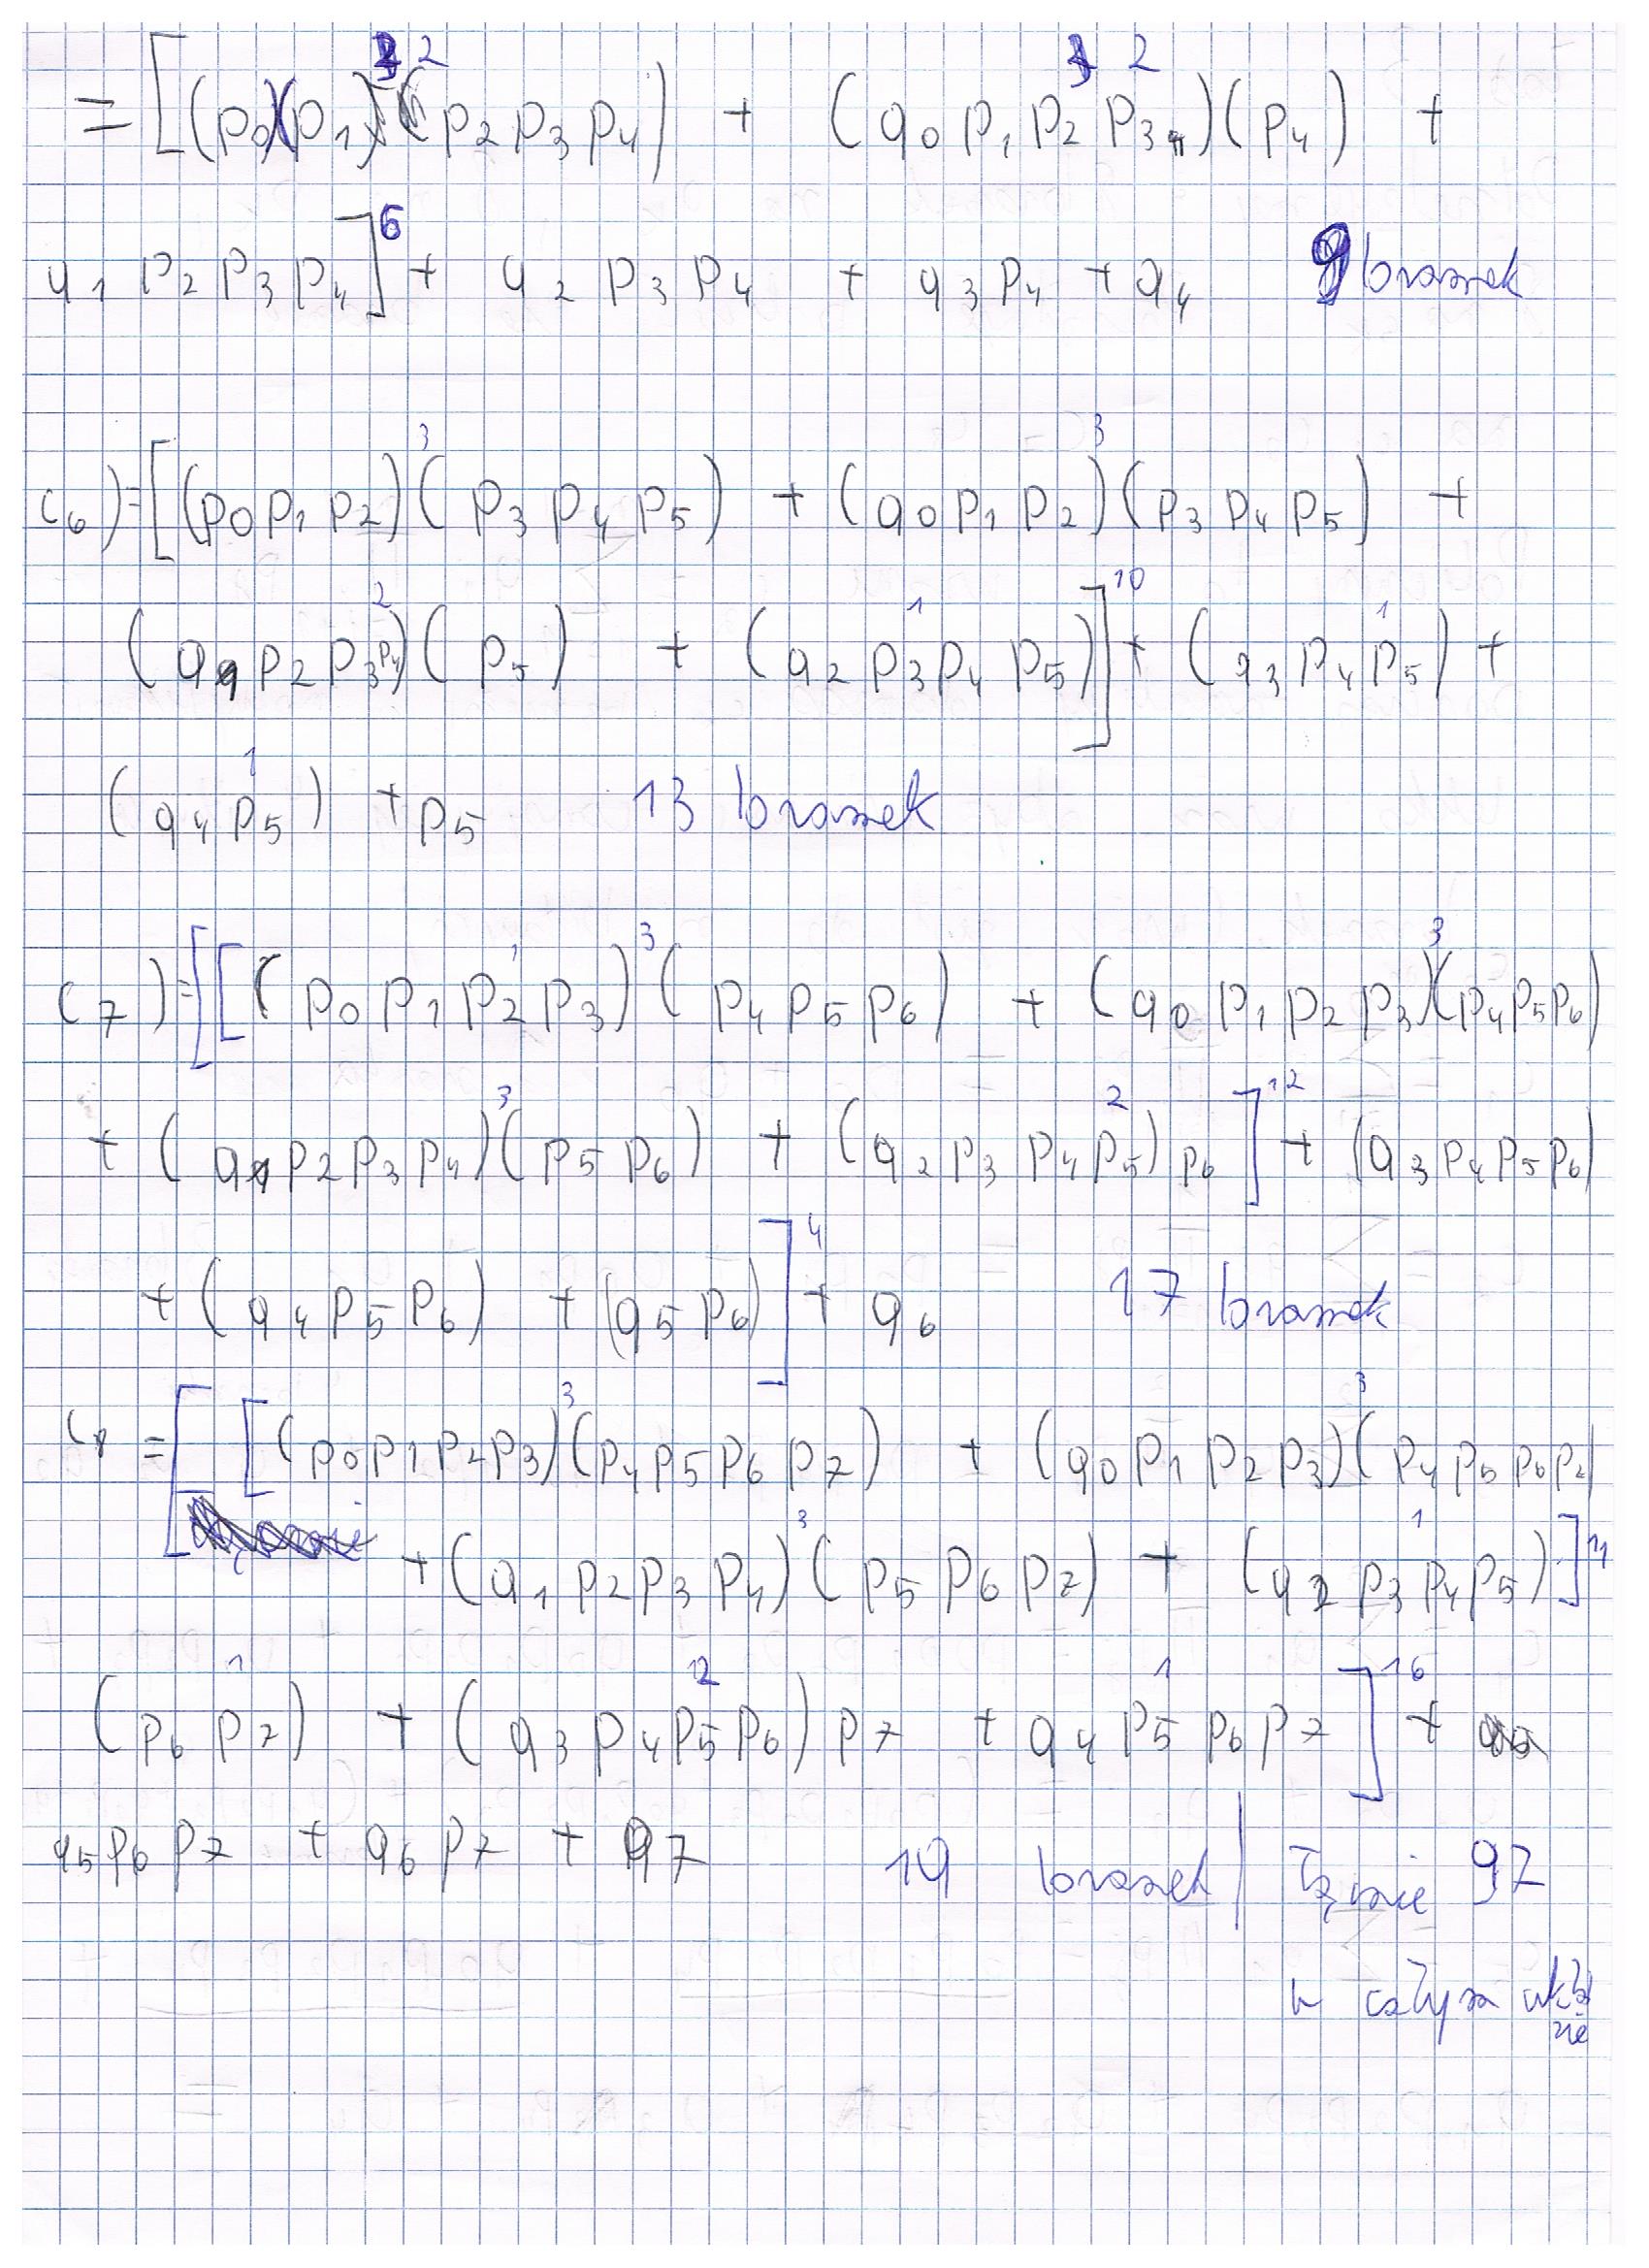 = [(p0)(p1)(p2 p3 p4) 2 + (q0 p1 p2 p3)(p4) 2 +
q1 p2 p3 p4]6 + q2 p3 p4 + q3 p4 + q4 9 bramek
c6) = [(p0 p1 p2) 3 (p3 p4 p5) + (q0 p1 p2) 3 (p3 p4 p5) +
(q1 p2 p3 p4) 2 (p5) + (q2 p3 p4 p5) 1 ]10 + (q3 p4 p5) 1 +
(q4 p5) 1 + p5 13 bramek
c7) = [[(p0 p1 p2 p3) 1 3 (p4 p5 p6) + (q0 p1 p2 p3) 3 (p4 p5 p6)
+ (q1 p2 p3 p4) 3 (p5 p6) + (q2 p3 p4 p5) 2 p6 ]12 + (q3 p4 p5 p6)
+ (q4 p5 p6) + (q5 p6)]4 + q6 17 bramek
c8 = [[(p0 p1 p2 p3) 3 (p4 p5 p6 p7) + (q0 p1 p2 p3) 3 (p4 p5 p6 p7)
+ (q1 p2 p3 p4) 3 (p5 p6 p7) + (q2 p3 p4 p5) 1 ]11
(p6 p7) 1 + (q3 p4 p5 p6) 2 p7 + q4 p5 p6 p7 1 ]16 +
q5 p6 p7 + q6 p7 + q7 19 bramek | Łącznie 92
w całym ukła
zie